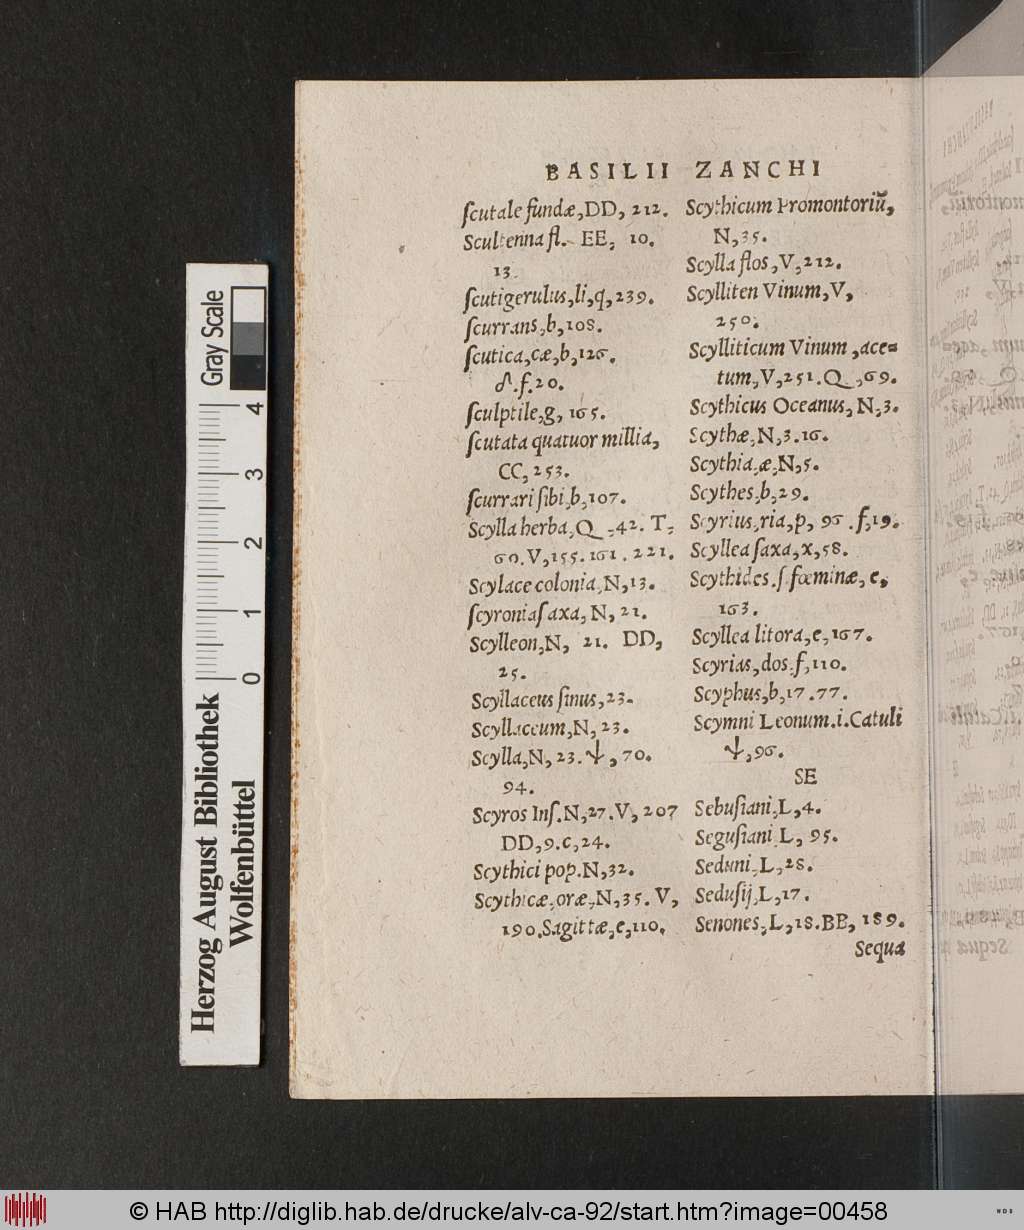 BASILII ZANCHI
ſcutale fundæ, DD, 212.
Scultenna fl. EE, 10.
13.
ſcutigerulus, li, q, 239.
ſcurrans, b, 108.
ſcutica, cæ, b, 126.
f. 20.
ſculptile, g, 165.
ſcutata quatuor millia,
CC, 253.
ſcurrari ſibi, b, 107.
Scylla herba, Q, 42. T,
60. V, 155. 161. 221.
Scylace colonia, N, 13.
ſcyronia ſaxa, N, 21.
Scylleon, N, 21. DD,
25.
Scyllaceus ſinus, 23.
Scyllaceum, N, 23.
Scylla, N, 23. Ψ, 70.
94.
Scyros Inſ. N, 27. V, 207
DD, 9. c, 24.
Scythici pop. N, 32.
Scythicæ, oræ, N, 35. V,
190. Sagittæ, e, 110.
Scythicum Promontoriũ,
N, 35.
Scylla flos, V, 212.
Scylliten Vinum, V,
250.
Scylliticum Vinum, ace=
tum, V, 251. Q, 69.
Scythicus Oceanus, N, 3.
Scythæ, N, 3. 16.
Scythia, æ, N, 5.
Scythes, b, 29.
Scyrius, ria, p, 96. f, 19.
Scyllea ſaxa, x, 58.
Scythides. ſ. fœminæ, e,
163.
Scyllea litora, e, 167.
Scyrias, dos, f, 110.
Scyphus, b, 17. 77.
Scymni Leonum. i. Catuli
Ψ, 96.
SE
Sebuſiani, L, 4.
Seguſiani L, 95.
Seduni, L, 28.
Seduſij, L, 17.
Senones, L, 18. BB, 189.
Sequa
Gray Scale
4 3 2 1 0
Herzog August Bibliothek
Wolfenbüttel
© HAB http://diglib.hab.de/drucke/alv-ca-92/start.htm?image=00458